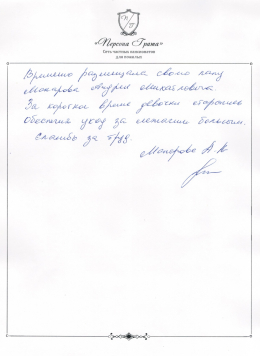 «Персона Грата»
Сеть частных пансионатов
для пожилых
Временно размещала своего папу
Макарова Андрея Михайловича.
За короткое время девочки старались
уход за лежачим больным.
Спасибо за труд.
Макарова А.А